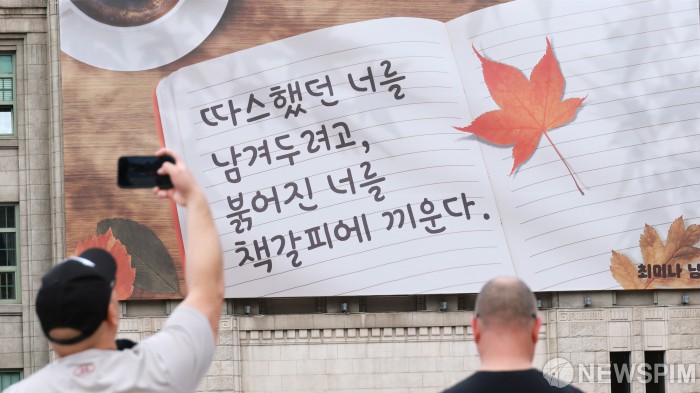 따스했던 너를
남겨두려고,
붉어진 너를
책갈피에 끼운다.
최미나 님
NEWSPIM